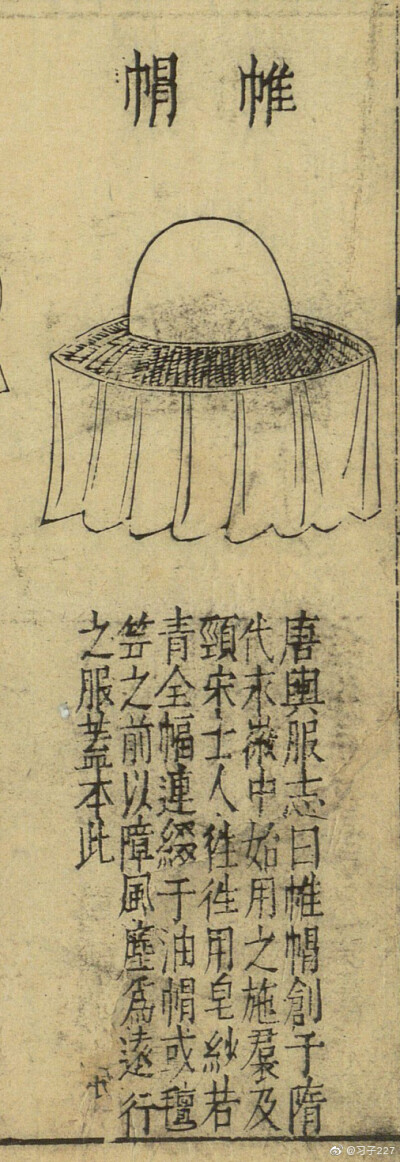 帷帽
唐輿服志曰帷帽創于隋
代永徽中始用之施裠及
頸宋士人徃徃用皂紗若
青全幅連綴于油帽或氊
笠之前以障風塵爲遠行
之服蓋本此
@习子227